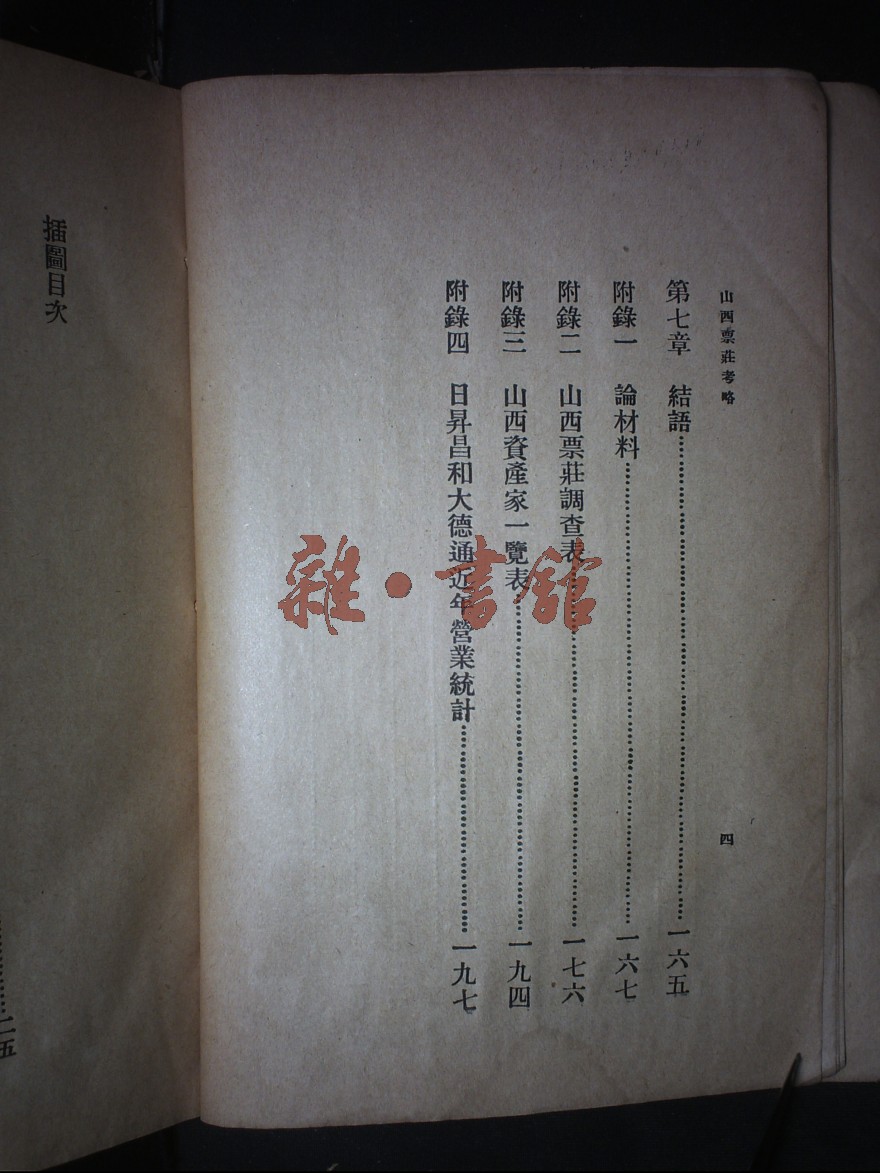 山西票莊考略
四
第七章 結語……一六五
附錄一 論材料……一六七
附錄二 山西票莊調查表……一七六
附錄三 山西資產家一覽表……一九四
附錄四 日昇昌和大德通近年營業統計……一九七
插圖目次
……二五
雜·書館